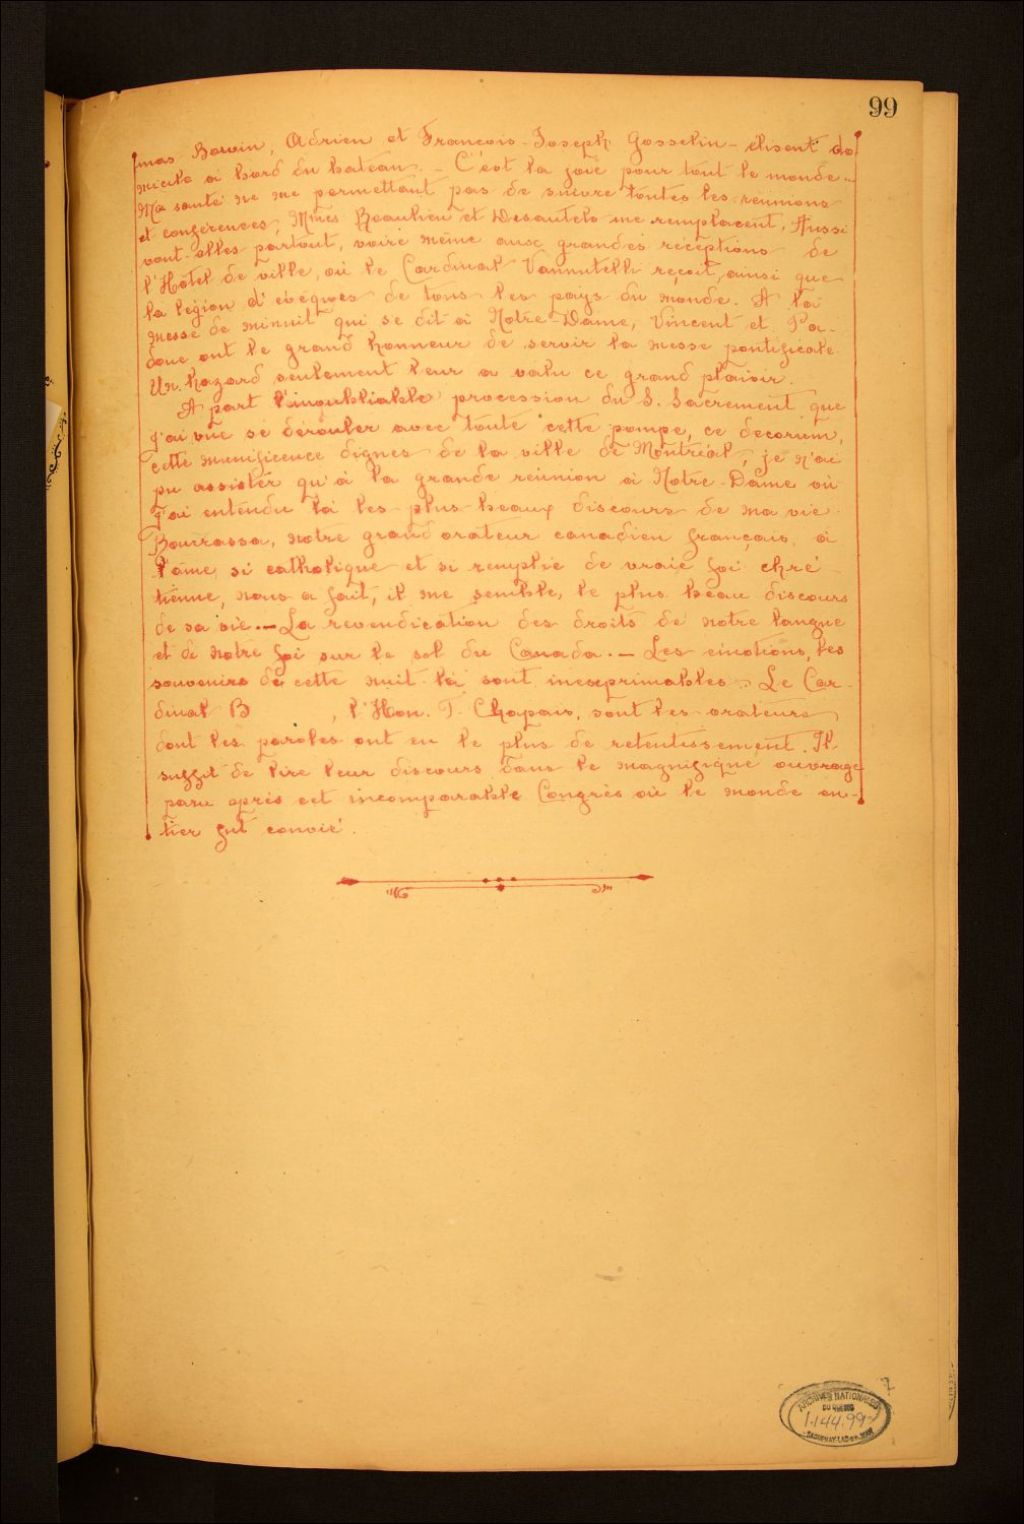 99
mas Bowin, Adrien et François-Joseph Gosselin - élisent do
micile à bord du bateau. - C'est la joie pour tout le monde. -
Ma santé ne me permettant pas de suivre toutes les réunions
et conférences, Mmes Beaulieu et Desautels me remplacent. Aussi
vont-elles partout, voire même aux grandes réceptions de
l'Hôtel de ville, où le Cardinal Vannutelli reçoit, ainsi que
la légion d'évêques de tous les pays du monde. A la
messe de minuit qui se dit à Notre-Dame, Vincent et Pa-
doue ont le grand honneur de servir la messe pontificale.
Un hazard seulement leur a valu ce grand plaisir.
A part l'inoubliable procession du S. Sacrement que
j'ai vue se dérouler avec toute cette pompe, ce decorum,
cette munificence dignes de la ville de Montréal, je n'ai
pu assister qu'à la grande réunion à Notre-Dame où
j'ai entendu là les plus beaux discours de ma vie.
Bourassa, notre grand orateur canadien français, à
l'âme si catholique et si remplie de vraie foi chré
tienne, nous a fait, il me semble, le plus beau discours
de sa vie. - La revendication des droits de notre langue
et de notre foi sur le sol du Canada. - Les émotions, les
souvenirs de cette nuit-là sont inexprimables. Le Car-
dinal B , l'Hon. T. Chapais, sont les orateurs
dont les paroles ont eu le plus de retentissement. Il
suffit de lire leur discours dans le magnifique ouvrage
paru après cet incomparable Congrès où le monde en-
tier fut convié.
7
ARCHIVES NATIONALES
DU QUÉBEC
1.144.99
SAGUENAY-LAC-ST-JEAN